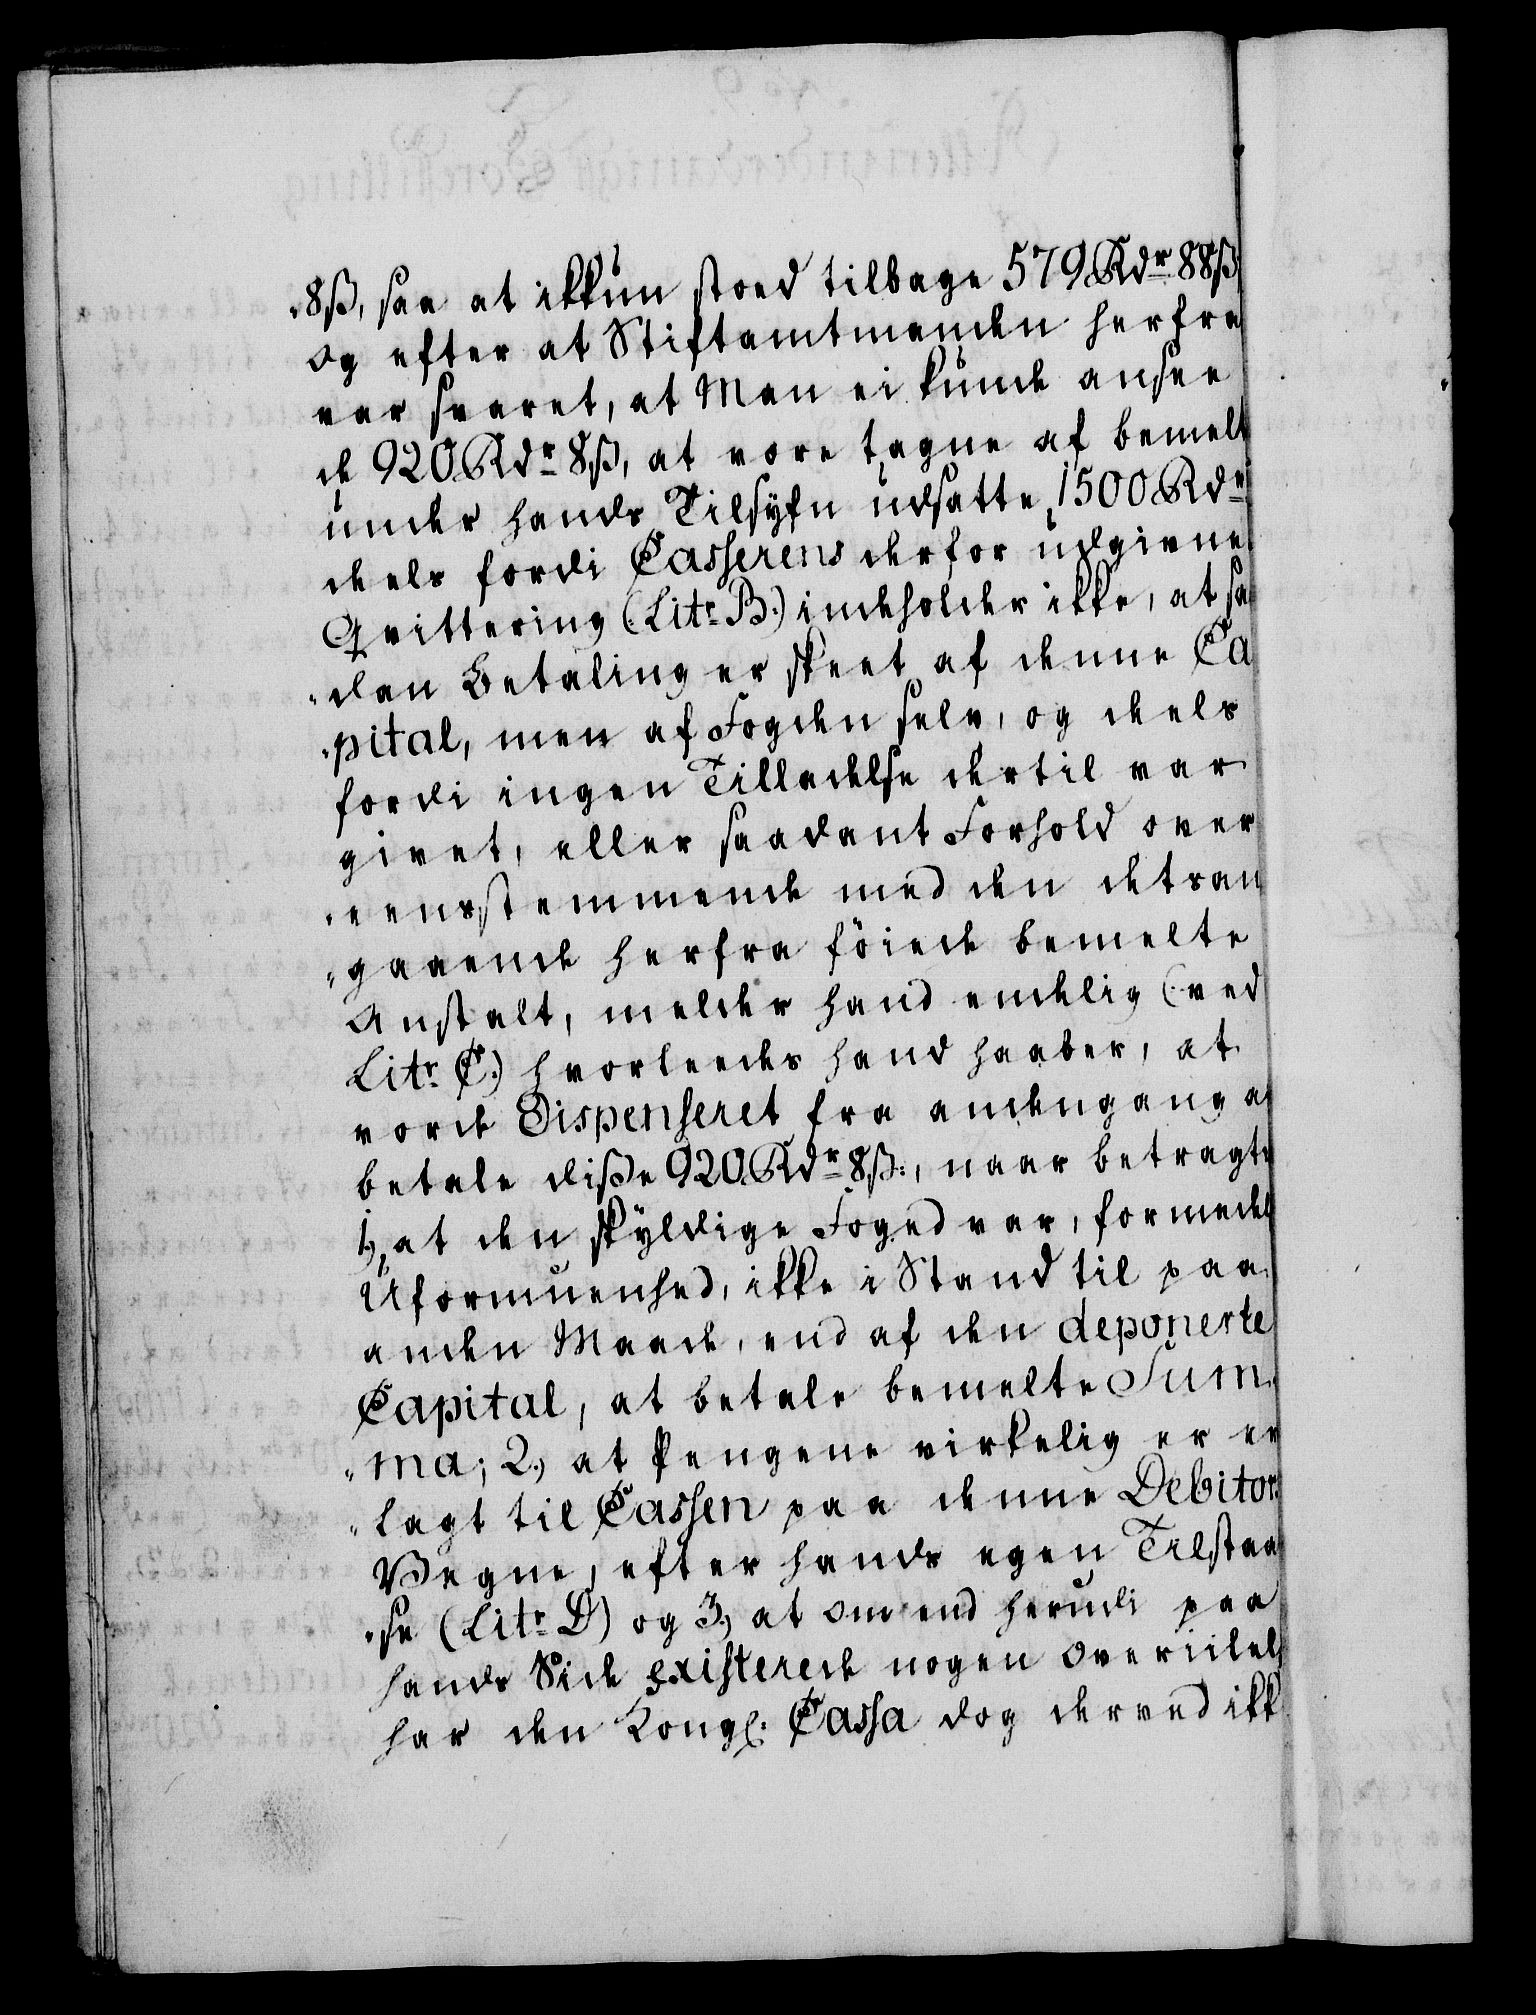 8ß, saa at ikkun stoed tilbage 579 Rdr 88ß
og efter at Stiftamtmanden herfra
var svaret, at Man ei kunde ansee
de 920 Rdr 8ß, at være tagne af bemelt
under hands Tilsyfn udsatte 1500 Rdr
deels fordi Casserens derfor udgivne
Qvittering (Litr B.) indeholder ikke, at sa
dan Betaling er skeet af denne Ca
pital, men af Fogden selv, og deels
fordi ingen Tilladelse dertil var
givet, eller saadant Forhold over
eensstemmende med den detsan
gaaende herfra föiede bemelte
Anstalt, melder hand endelig (ved
Litr C.) hvorleedes hand haaber, at
vorde Dispenseret fra andengang a
betale disse 920 Rdr 8ß:, naar betragte
1, at den skyldige Foged var, formedel
Uformuenhed, ikke i Stand til paa
anden Maade, end af den deponerte
Capital, at betale bemelte Sum
ma; 2, at Pengene virkelig er er
lagt til Cassen paa denne Debitor
Vegne, efter hands egen Tilstaa
se (Litr D) og 3, at om end herudi paa
hands Side Existerede nogen overiilel
har den Kongl: Cassa dog derved ikk